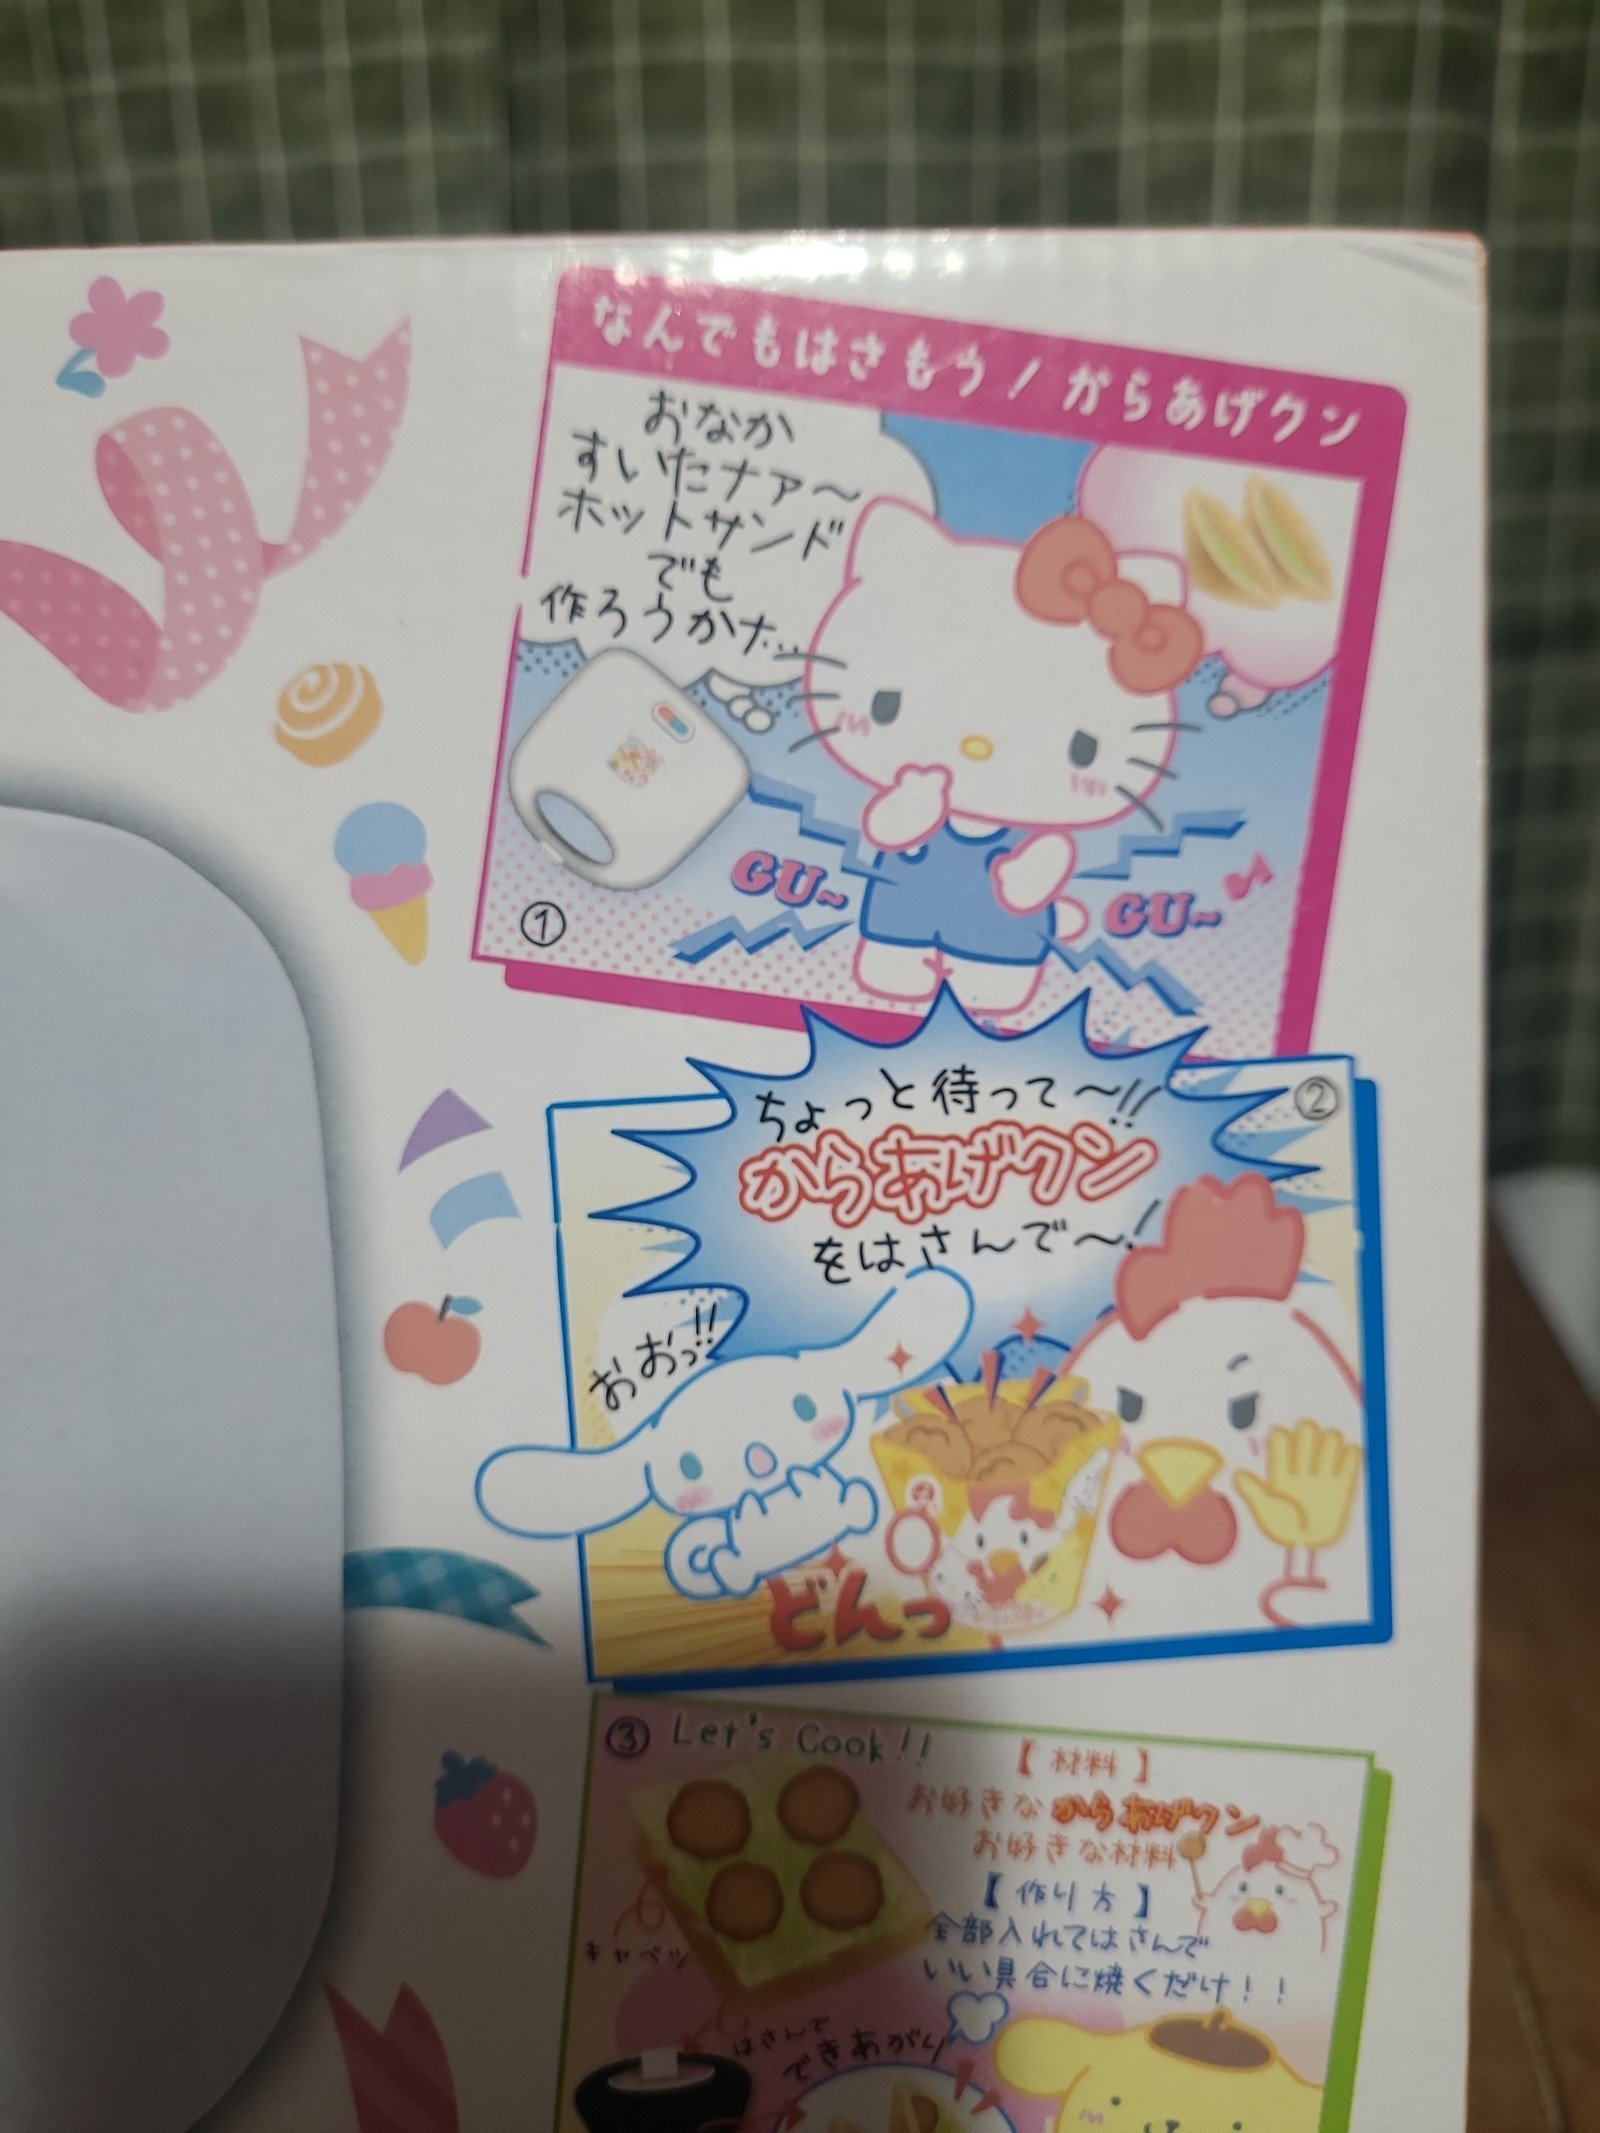 なんでもはさもう！からあげクン
おなか
すいたナァ～
ホットサンド
でも
作ろうかナ…
GU~
GU~
①
②
ちょっと待って～!!
からあげクン
をはさんで～!
おおっ!!
どんっ
③ Let's Cook!!
【材料】
お好きなからあげクン
お好きな材料
【作り方】
全部入れてはさんで
いい具合に焼くだけ！！
キャベツ
はさんで
できあがり